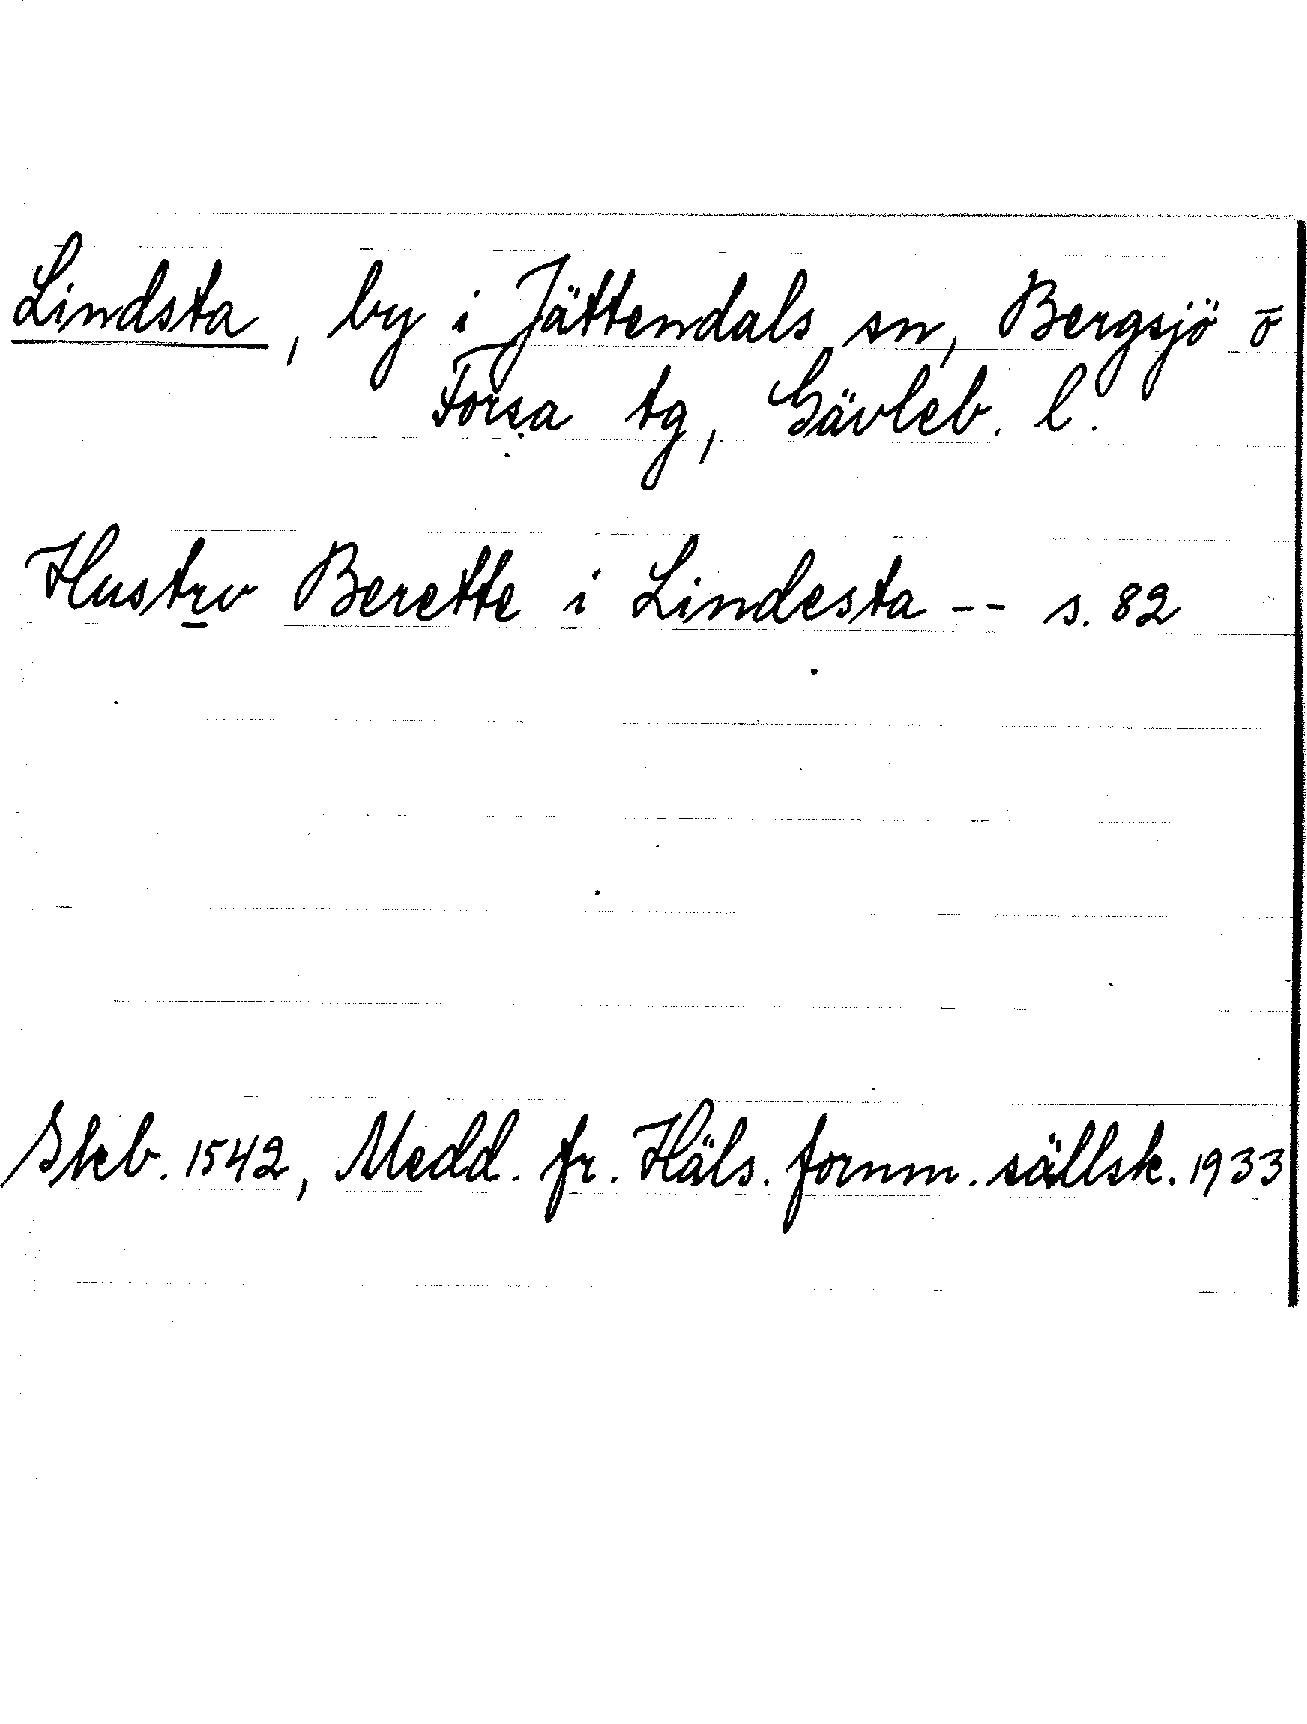 Lindsta, by i Jättendals sn, Bergsjö o
Forsa tg, Gävleb. l.
Hustrv Berette i Lindesta -- s. 82
Skb. 1542, Medd. fr. Häls. fornm. sällsk. 1933